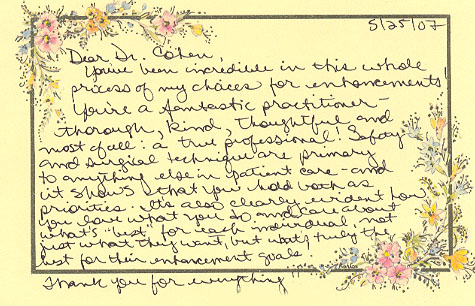 5/25/07
Dear Dr. Cohen,
You've been incredible in this whole
process of my choices for enhancements!
You're a fantastic practitioner -
thorough, kind, thoughtful and
most of all: a true professional! Safety
and surgical technique are primary
to anything else in patient care - and
it shows that you hold both as
priorities. It's also clearly evident how
you love what you do and care about
what's "best" for each individual - not
just what they want, but what's truly the
best for their enhancement goals.
Thank you for everything